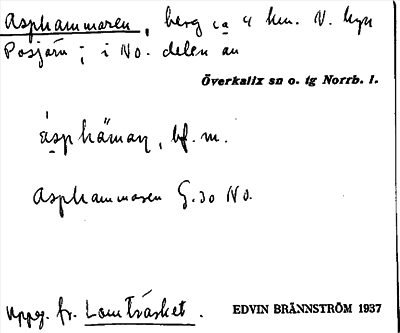 Asphammaren, berg ca 4 km. V. byn
Posjärv; i No. delen av
Överkalix sn o. tg Norrb. l.
ásphäman, bf. m.
Asphammaren G. 30 No.
Uppg. fr. Lomträsket.
EDVIN BRÄNNSTRÖM 1937